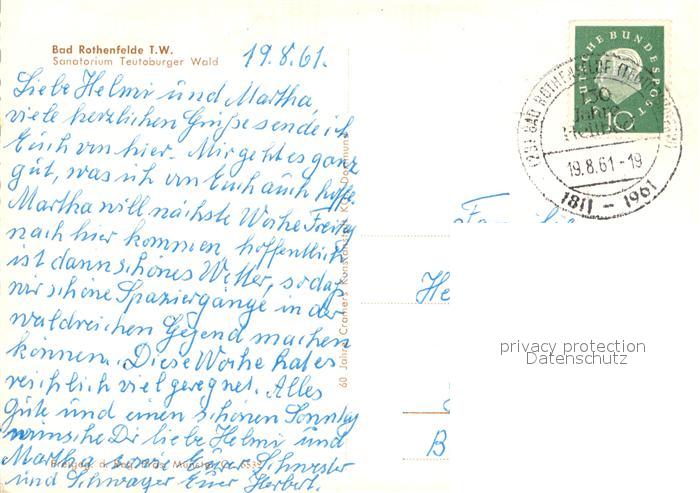 Bad Rothenfelde T.W.
Sanatorium Teutoburger Wald
19.8.61.
Liebe Helmi und Martha,
viele herzlichen Grüße sende ich
Euch von hier. Mir geht es ganz
gut, was ich von Euch auch hoffe.
Martha will nächste Woche Freitag
nach hier kommen, hoffentlich
ist dann schönes Wetter, sodaß
wir schöne Spaziergänge in der
waldreichen Gegend machen
können. Diese Woche hat es
reichlich viel geregnet. Alles
Gute und einen schönen Sonntag
wünsche Dir liebe Helmi und
Martha sowie Euer Schwester
und Schwager Euer Herbert.
60 Jahre Cramers Kunstanstalt KG, Dortmund
DEUTSCHE BUNDESPOST
10
(23) BAD ROTHENFELDE
150
Jahre
19.8.61-19
1811 - 1961
Familie
He
B
privacy protection
Datenschutz